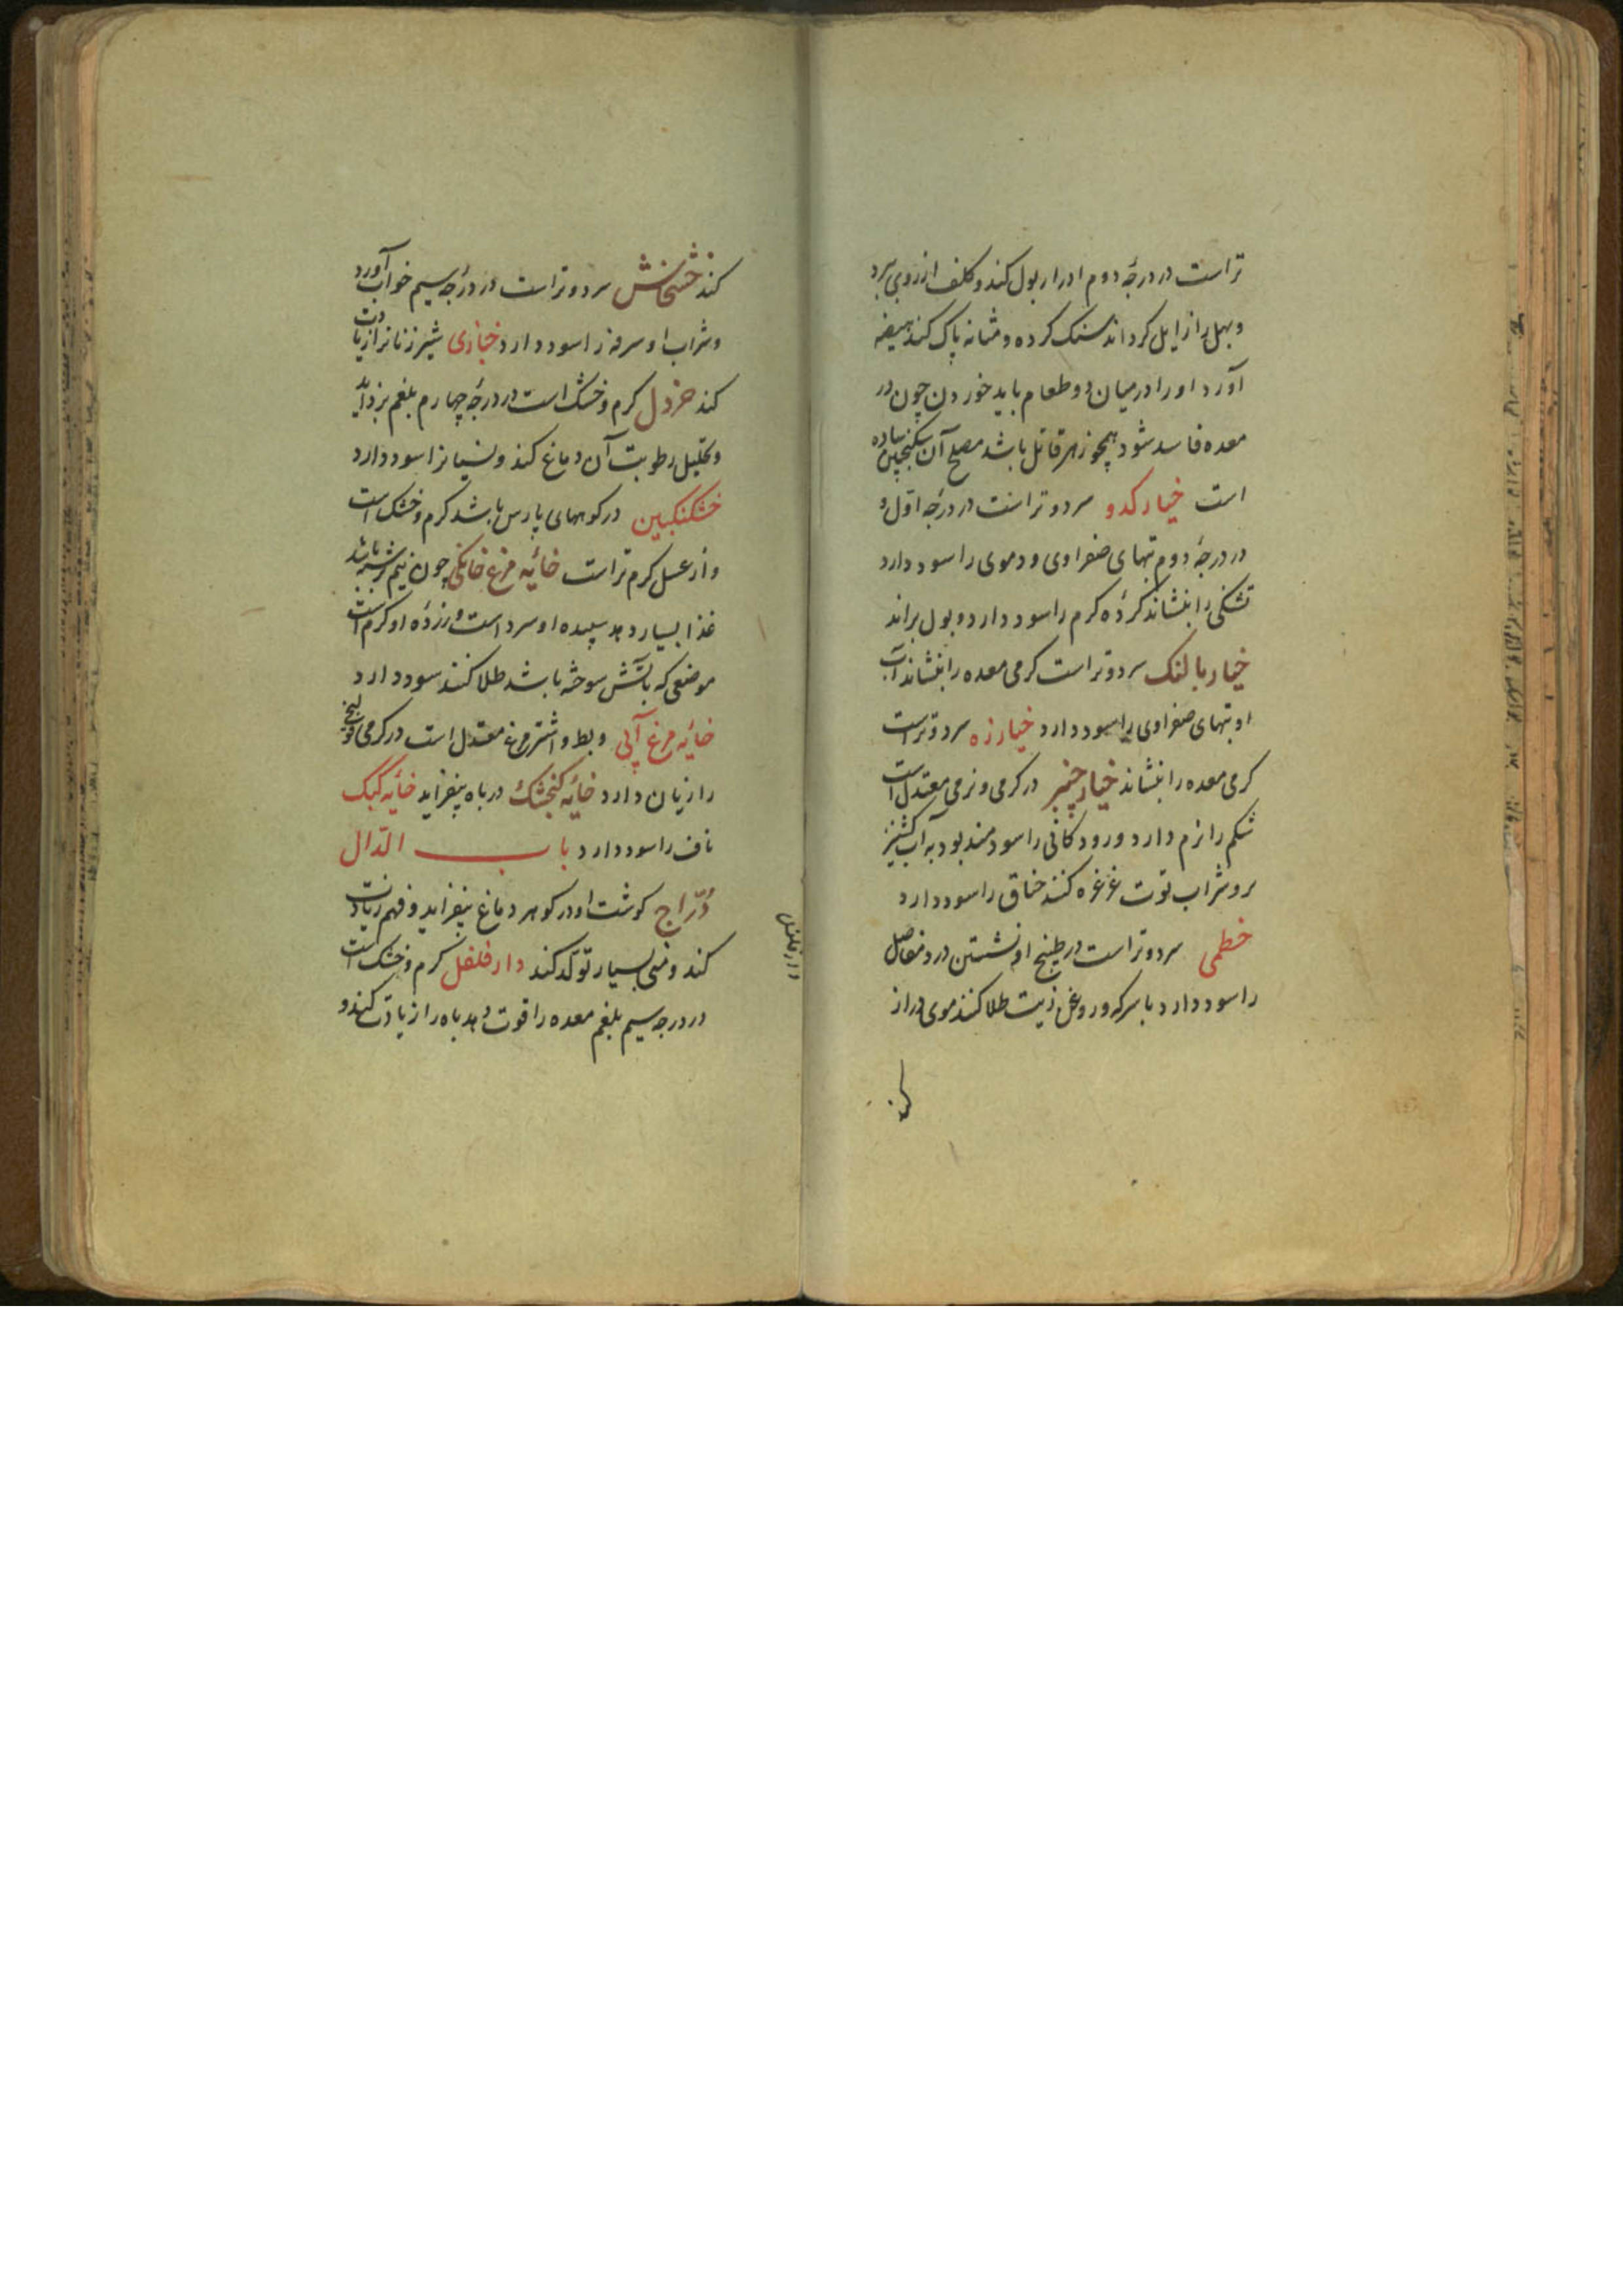 تراست در درجهٔ دوم ادرار بول کند و کلف از روی ببرد
و بهق را زایل کرداند سنک کرده و مثانه پاک کند هیضه
آورد او را در میان دو طعام باید خوردن چون در
معده فاسد شود همچو زهر قاتل باشد مصلح آن سکنجبین ساده
است خیار کدو سرد و تر است در درجه اوّل و
در درجهٔ دوم تبهای صفراوی و دموی را سود دارد
تشنکی را بنشاند کردهٔ کرم را سود دارد و بول براند
خیار بالنک سرد و تر است کرمی معده را بنشاند آب
او تبهای صفراوی را سود دارد خیارزه سرد و تر است
کرمی معده را بنشاند خیار چنبر در کرمی و نرمی معتدل است
شکم را نرم دارد و رودکانی را سودمند بود به آب کشنیز
بر و شراب توت غرغره کنند خناق را سود دارد
خطمی سرد و تر است در طبیخ او نشستن درد مفاصل
را سود دارد با سرکه و روغن زیت طلا کنند موی دراز
کند
کند خشخاش سرد و تر است در درجهٔ سیم خواب آورد
و شراب او سرفه را سود دارد خبازی شیر زنانرا زیادت
کند خردل کرم و خشک است در درجهٔ چهارم بلغم بزداید
و تحلیل رطوبت آن دماغ کند و نسیانرا سود دارد
خشکنکبین در کوههای پارس باشد کرم و خشک است
و از عسل کرم تر است خایهٔ مرغ خانکی چون نیم برشته باشد
غذا بسیار دهد سپیده او سرد است و زردهٔ او کرم است
موضعی که بآتش سوخته باشد طلا کنند سود دارد
خایهٔ مرغ آبی و بط و اشترمرغ معتدل است در کرمی قولنج
را زیان دارد خایهٔ کنجشک در باه بیفزاید خایهٔ کبک
ناف را سود دارد باب الدّال
دُرّاج کوشت او در کوهر دماغ بیفزاید و فهم زیادت
کند و منی بسیار تولّد کند دارفلفل کرم و خشک است
در درجه سیم بلغم معده را قوت دهد باه را زیادت کند و
دارفلفل